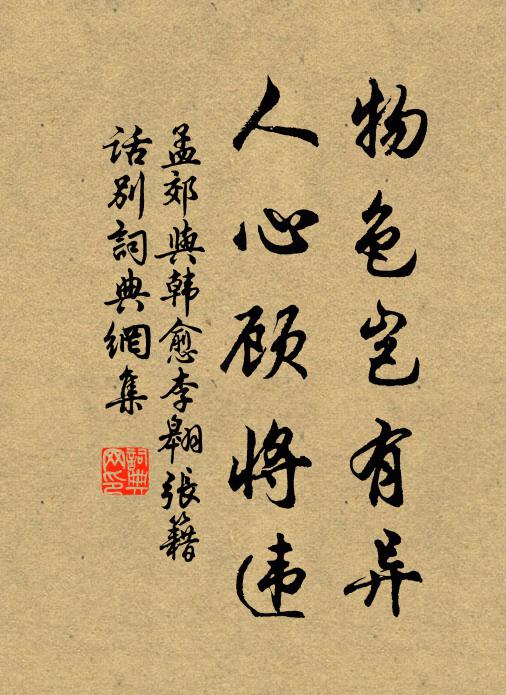 物色岂有异
人心顾将违
孟郊與韩愈李翱張籍
话别詞典網集
詞典网印